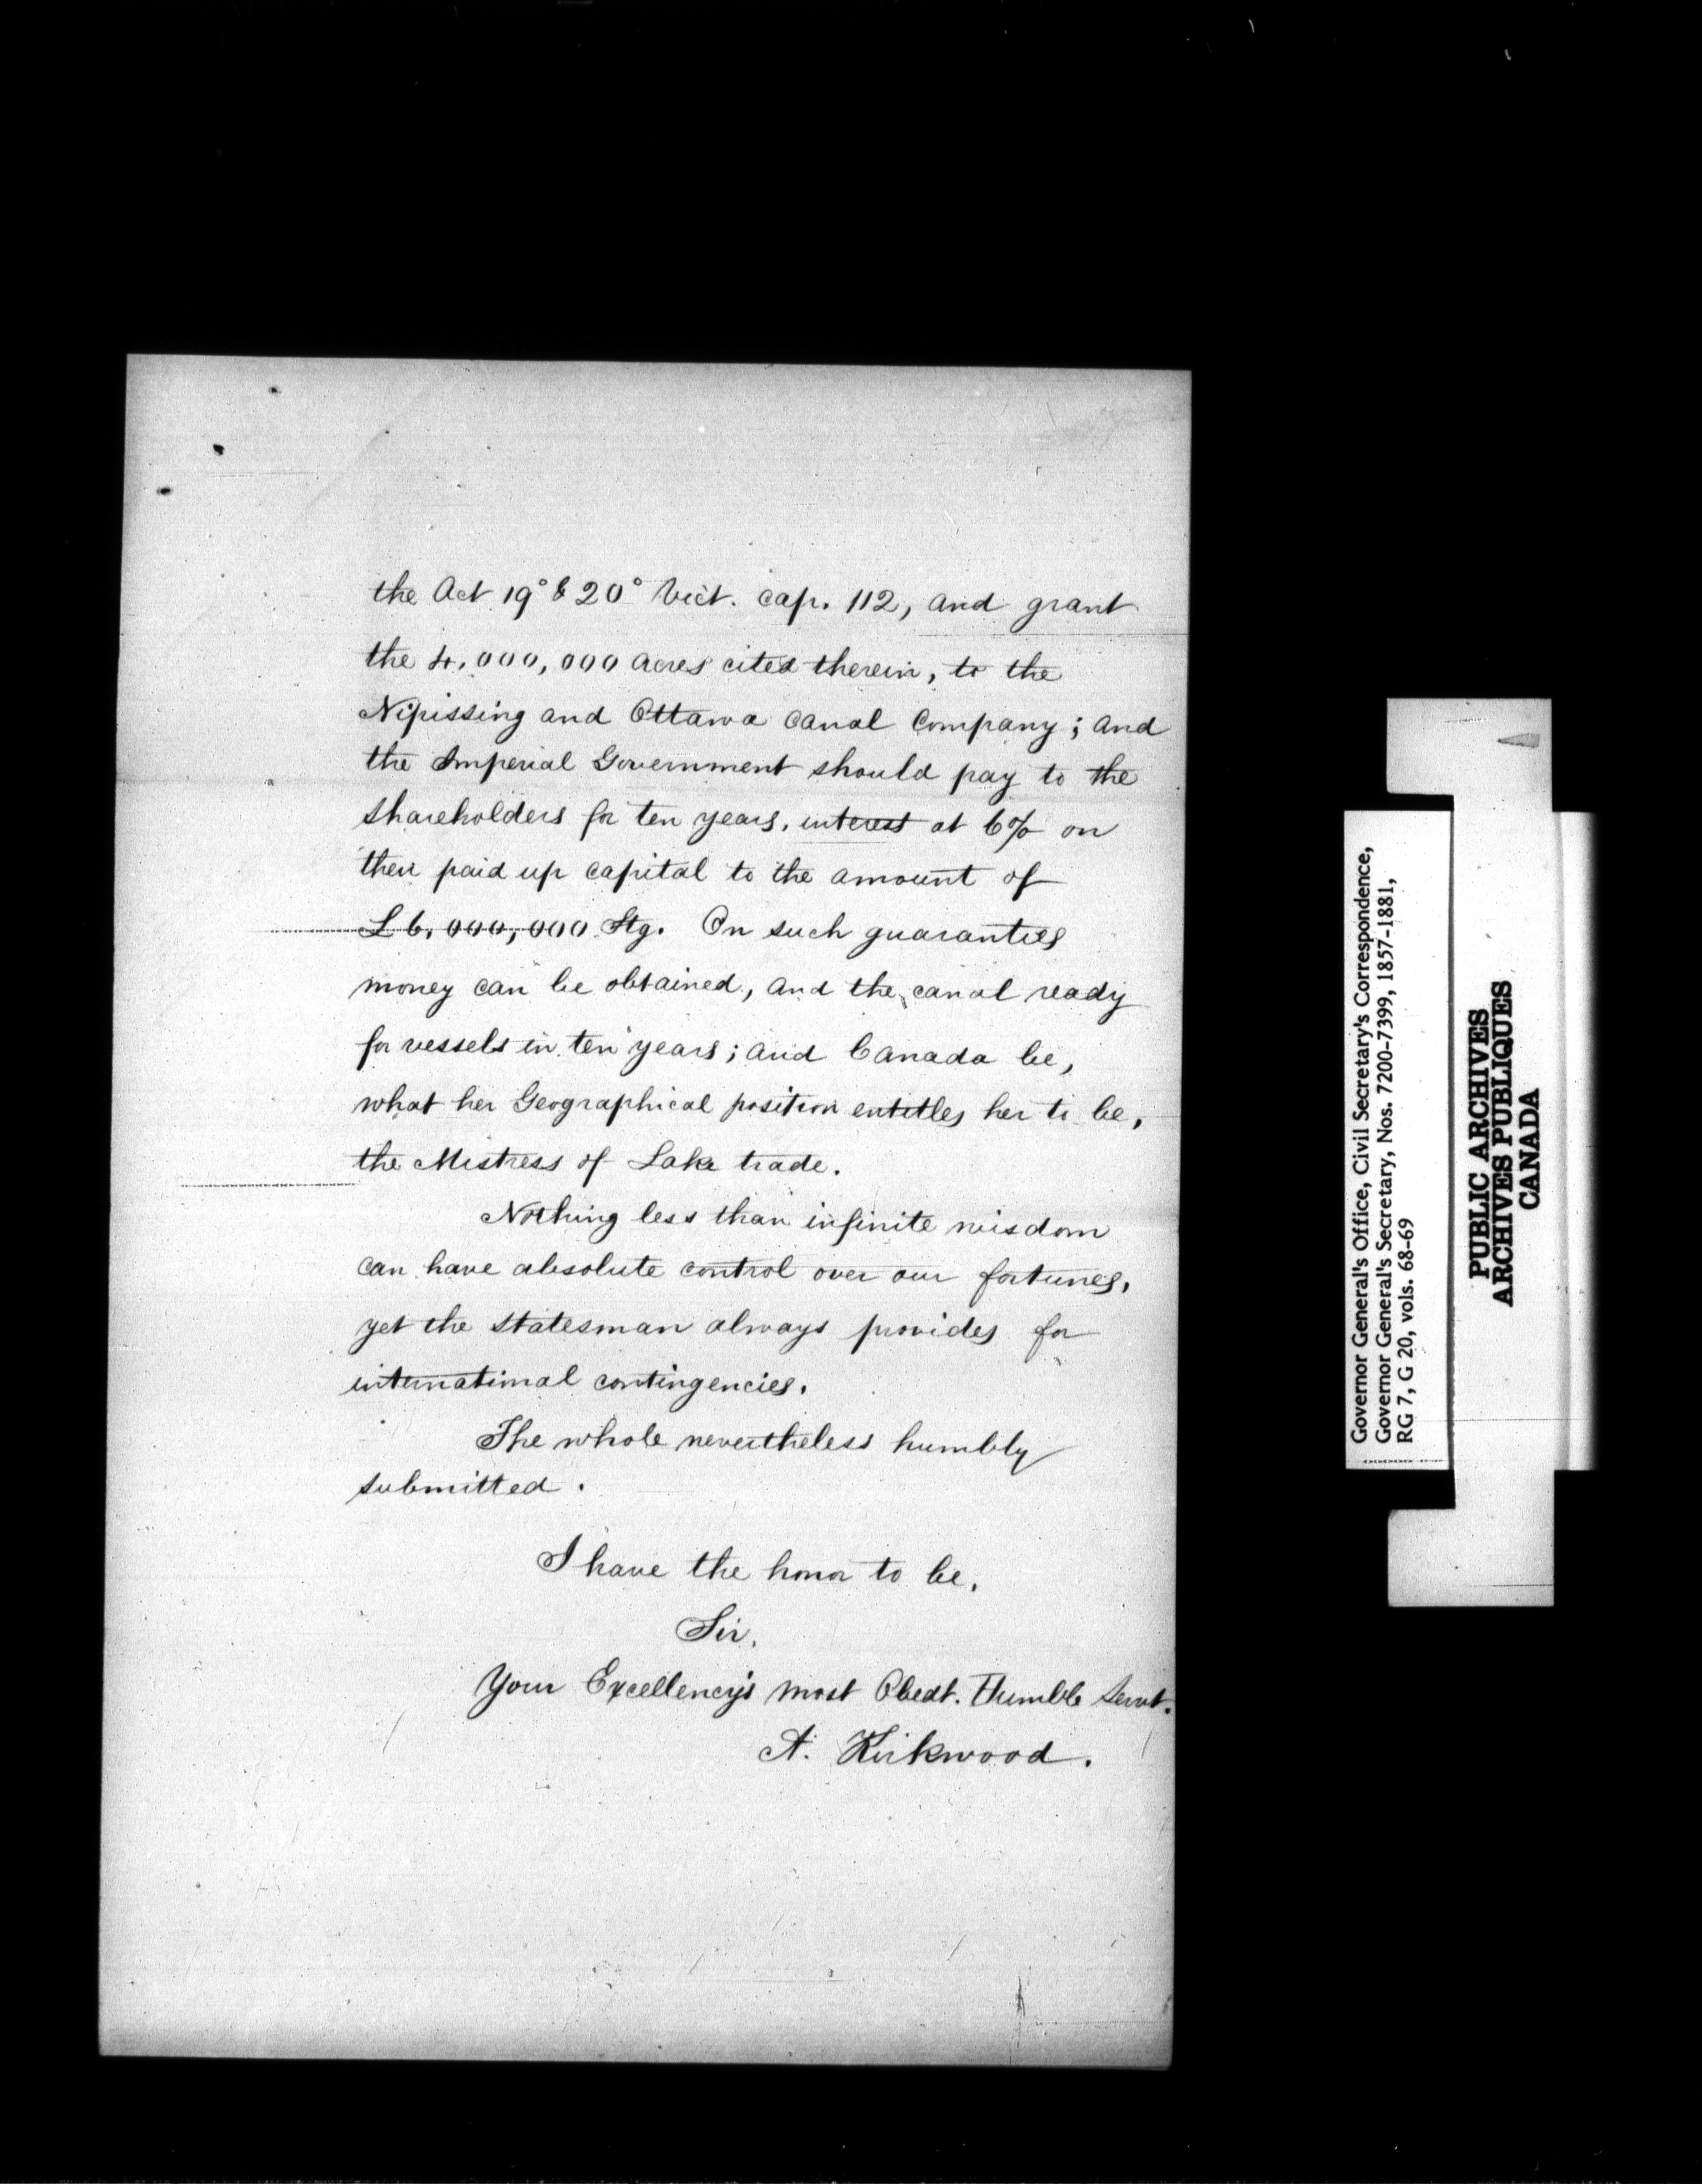 the Act 19° & 20° Vict. cap. 112, and grant
the 4,000,000 acres cited therein, to the
Nipissing and Ottawa Canal Company; and
the Imperial Government should pay to the
shareholders for ten years, interest at 6% on
their paid up capital to the amount of
£6,000,000 Stg. On such guaranties
money can be obtained, and the canal ready
for vessels in ten years; and Canada be,
what her Geographical position entitles her to be,
the Mistress of Lake trade.
Nothing less than infinite wisdom
can have absolute control over our fortunes,
yet the statesman always provides for
international contingencies.
The whole nevertheless humbly
submitted.
I have the honor to be,
Sir,
Your Excellency's most Obedt. Humble Servt.
A. Kirkwood.
Governor General's Office, Civil Secretary's Correspondence,
Governor General's Secretary, Nos. 7200-7399, 1857-1881,
RG 7, G 20, vols. 68-69
PUBLIC ARCHIVES
ARCHIVES PUBLIQUES
CANADA